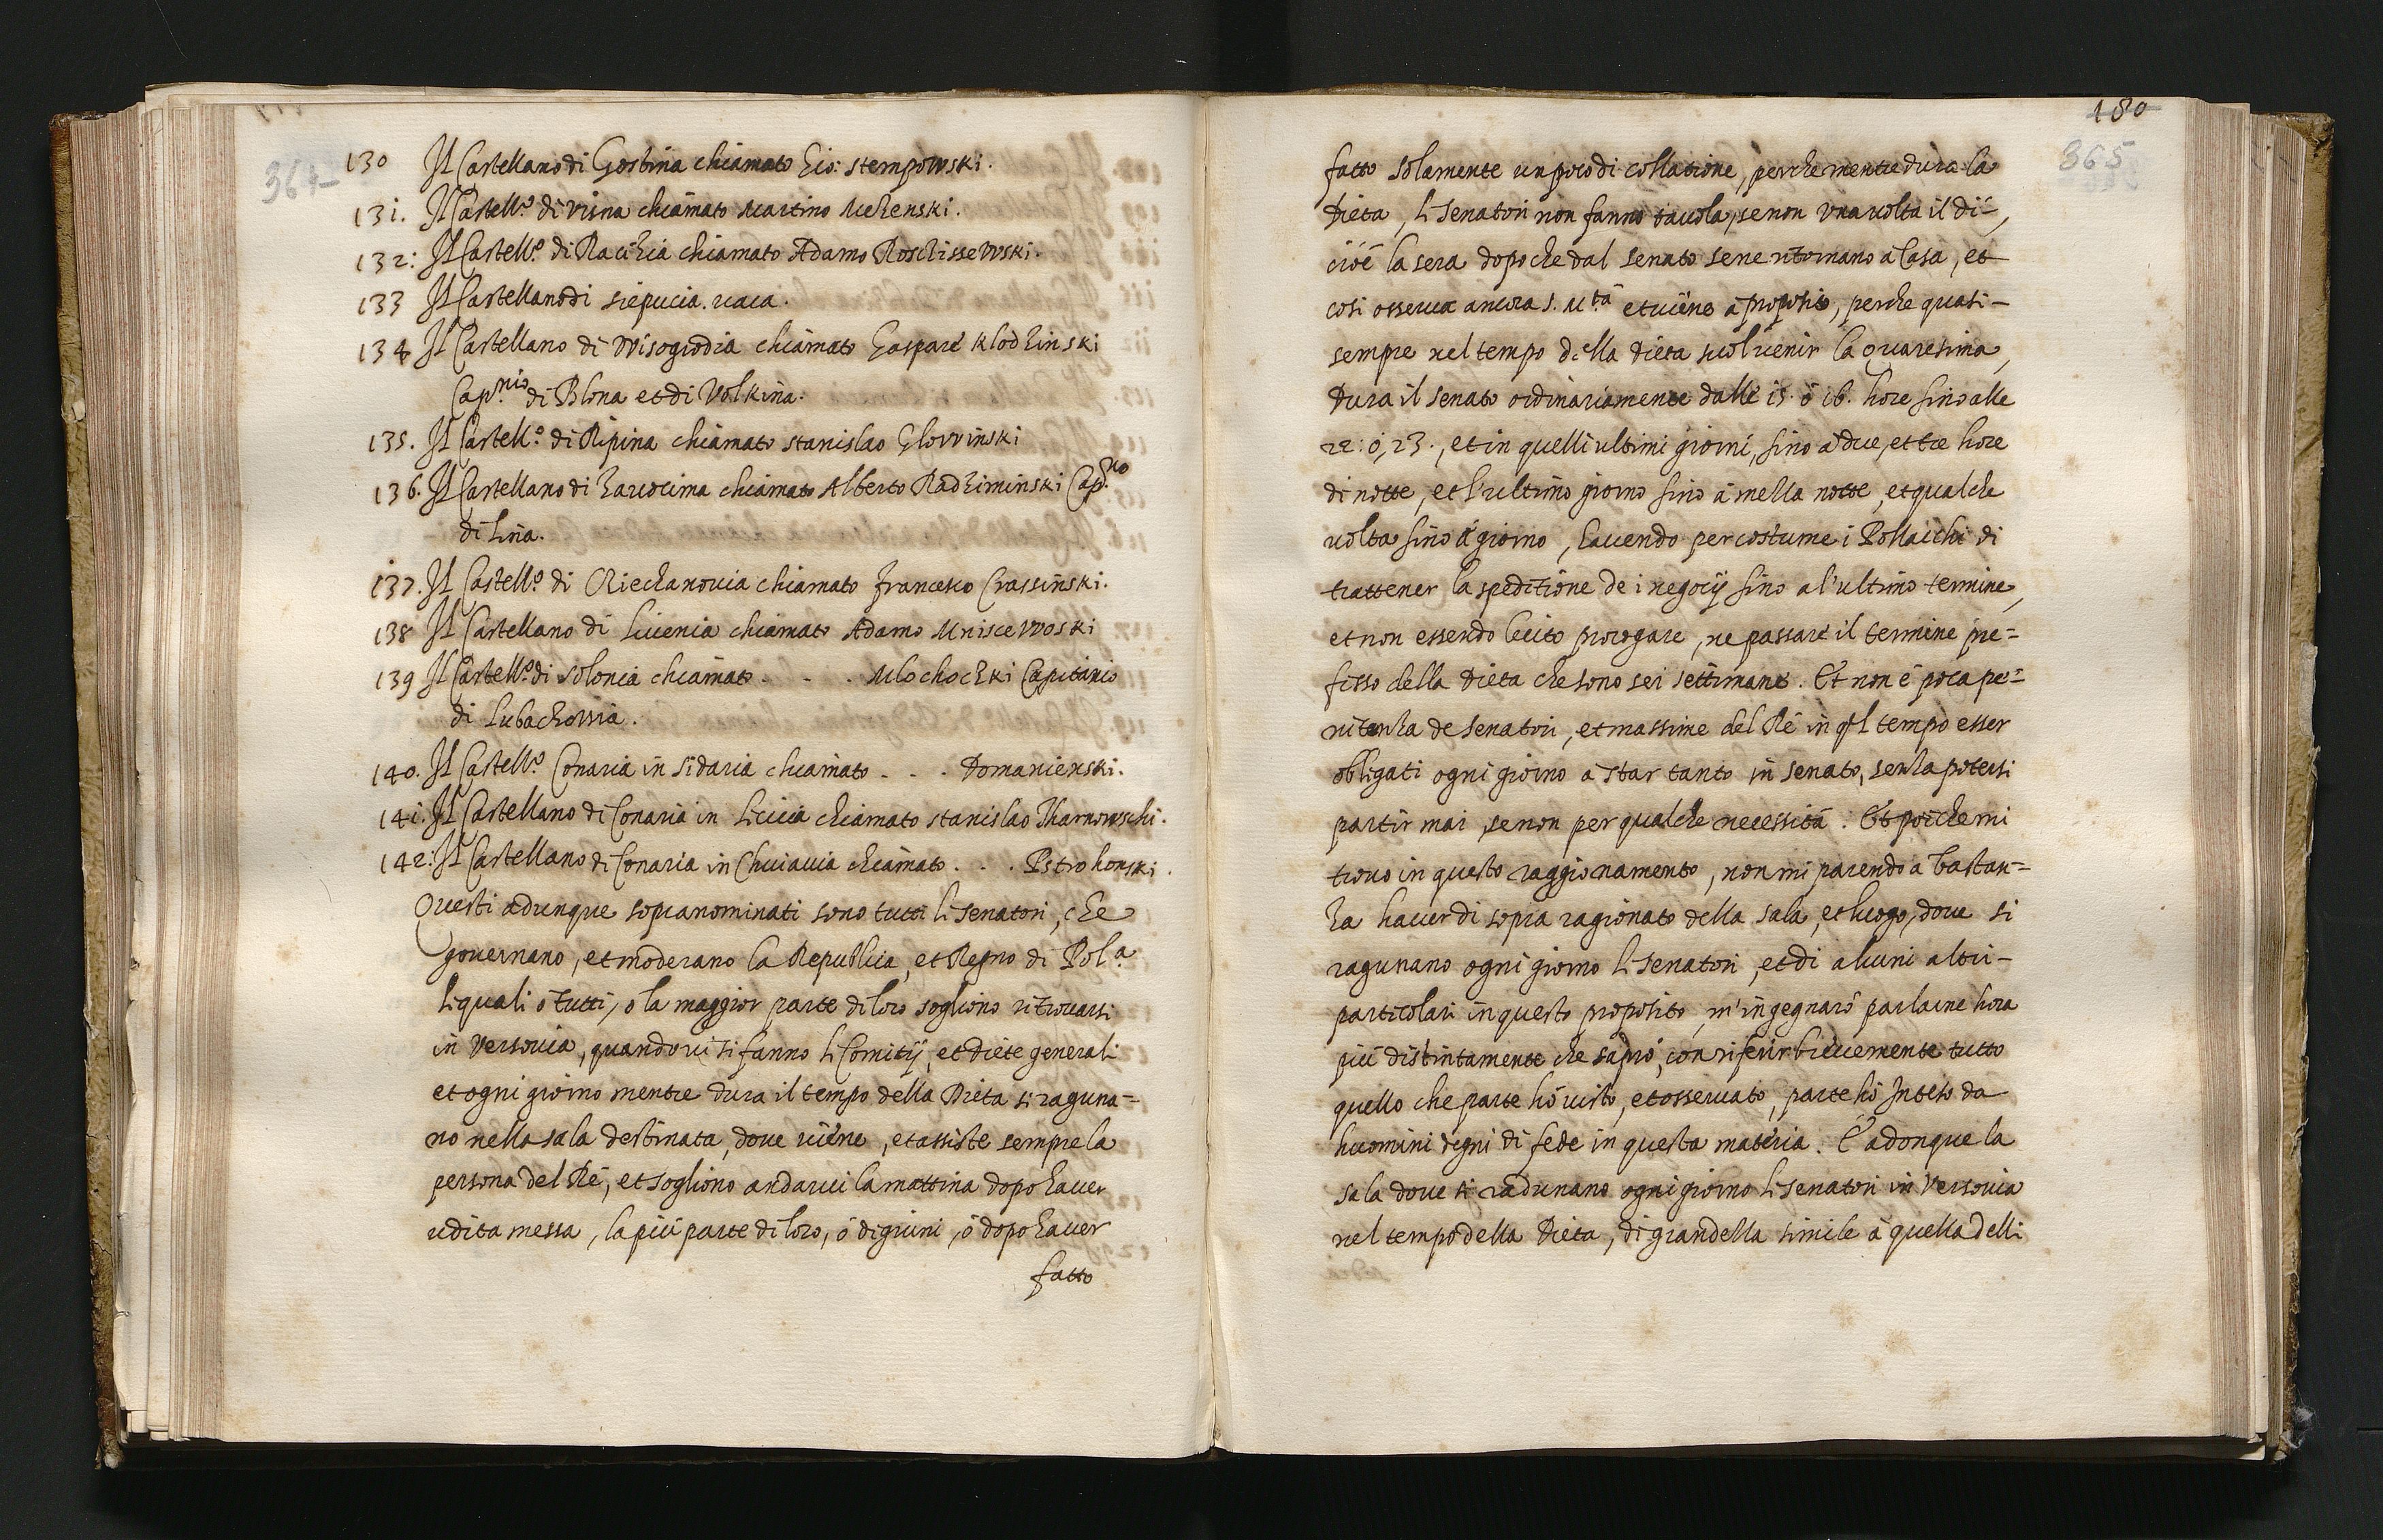 364
130 Il Castellano di Gostina chiamato Gio: Stempowski.
131. Il Castell.o di Visna chiamato Martino Uchenski.
132: Il Castell.o di Racihia chiamato Adamo Roschissewski.
133 Il Castellano di Siepucia. uaca.
134 Il Castellano di Wisogrodia chiamato Gaspare Klodzinski
Cap.nio di Blona et di Volkina.
135. Il Castell.o di Ripina chiamato Stanislao Glovvinski
136. Il Castellano di Zarocima chiamato Alberto Radziminski Cap.no
di Lina.
137. Il Castell.o di Ciechanovia chiamato Francesco Crassinski.
138 Il Castellano di Livenia chiamato Adamo Mniscewoski
139 Il Castell.o di Solonia chiamato . . . Mlochoczki Capitanio
di Lubachovvia.
140. Il Castell.o Conaria in Sidaria chiamato . . . Domanienski.
141. Il Castellano di Conaria in Licicia chiamato Stanislao Tharnowschi.
142: Il Castellano di Conaria in Chuiauia chiamato . . . Pstrohonski.
Questi adunque sopranominati sono tutti li Senatori, che
gouernano, et moderano la Republica, et Regno di Pol.a
li quali ò tutti, o la maggior parte di loro sogliono ritrouarsi
in Versouia, quando ui si fanno li Comitij, et diete generali
et ogni giorno mentre dura il tempo della Dieta si raguna=
no nella sala destinata, doue uiene, et assiste sempre la
persona del Rè, et sogliono andarui la mattina dopo hauer
udita messa, la più parte di loro, ò digiuni, ò dopo hauer
fatto
180
365
fatto solamente un poco di collatione, perche mentre dura la
Dieta, li Senatori non fanno tauola, se non una uolta il dì-,
cioè la sera dopo che dal Senato se ne ritornano à Casa, et
cosi osserua ancora S. M.tà et uiene à proposito, perche quasi-
sempre nel tempo della Dieta suol uenir la Quaresima,
Dura il Senato ordinariamente dalle 15. ò 16. hore sino alle
22: ò, 23., et in quelli ultimi giorni, sino à due, et tre hore
di notte, et l'ultimo giorno sino à mella notte, et qualche
uolta sino à giorno, hauendo per costume i Pollacchi di
trattener la speditione de i negocij sino al'ultimo termine,
et non essendo lecito prorogare, ne passare il termine pre=
fisso della Dieta che sono sei settimane. Et non è poca pe=
nitenza de Senatori, et massime del Rè in q.l tempo esser
obligati ogni giorno à star tanto in Senato, senza potersi
partir mai, se non per qualche necessità. Et poiche mi
trouo in questo raggionamento, non mi parendo à bastan=
za hauer di sopra ragionato della sala, et luogo, doue si
ragunano ogni giorno li Senatori, et di alcuni altri-
particolari in questo proposito, m'ingegnarò parlarne hora
più distintamente che saprò, con riferir breuemente tutto
quello che parte hò uisto, et osseruato, parte hò Inteso da
huomini degni di fede in questa materia. È adonque la
sala doue si radunano ogni giorno li Senatori in Versouia
nel tempo della Dieta, di grandella simile à quella delli